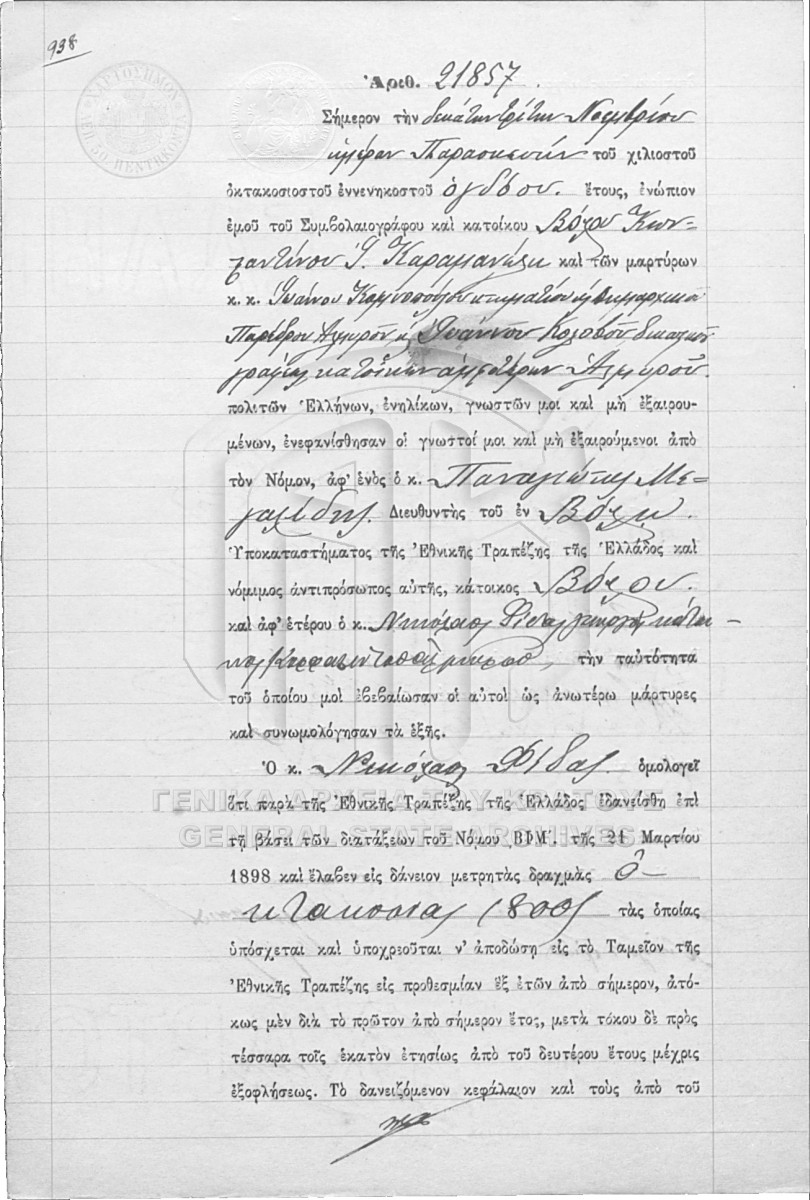 938
ΧΑΡΤΟΣΗΜΟΝ
ΛΕΠ. 50 ΠΕΝΤΗΚΟΝΤΑ
Ἀριθ. 21857.
Σήμερον τὴν δεκάτην τρίτην Νοεμβρίου
ἡμέραν Παρασκευὴν τοῦ χιλιοστοῦ
ὀκτακοσιοστοῦ ἐννενηκοστοῦ ὀγδόου. ἔτους, ἐνώπιον
ἐμοῦ τοῦ Συμβολαιογράφου καὶ κατοίκου Βόλου Κων-
σταντίνου Ἰ. καὶ τῶν μαρτύρων
κ. κ. Ἰωάννου κτηματίου
Παρέδρου Ἁλμυροῦ, Ἰωάννου
κατοίκων ἀμφοτέρων Ἁλμυροῦ.
πολιτῶν Ἑλλήνων, ἐνηλίκων, γνωστῶν μοι καὶ μὴ ἐξαιρου-
μένων, ἐνεφανίσθησαν οἱ γνωστοί μοι καὶ μὴ ἐξαιρούμενοι ἀπὸ
τὸν Νόμον, ἀφ' ἑνὸς ὁ κ. Παναγιώτης Με-
γαλίδης. Διευθυντὴς τοῦ ἐν Βόλῳ.
Ὑποκαταστήματος τῆς Ἐθνικῆς Τραπέζης τῆς Ἑλλάδος καὶ
νόμιμος ἀντιπρόσωπος αὐτῆς, κάτοικος Βόλου.
καὶ ἀφ' ἑτέρου ὁ κ. Νικόλαος Φίδας γεωργὸς κάτοι-
κος τὴν ταὐτότητα
τοῦ ὁποίου μοὶ ἐβεβαίωσαν οἱ αὐτοὶ ὡς ἀνωτέρω μάρτυρες
καὶ συνωμολόγησαν τὰ ἑξῆς.
Ὁ κ. Νικόλαος Φίδας. ὁμολογεῖ
ΓΕΝΙΚΑ ΑΡΧΕΙΑ ΤΟΥ ΚΡΑΤΟΥΣ
ὅτι παρὰ τῆς Ἐθνικῆς Τραπέζης τῆς Ἑλλάδος ἐδανείσθη ἐπὶ
GENERAL STATE ARCHIVES
τῇ βάσει τῶν διατάξεων τοῦ Νόμου ΒΦΜ'. τῆς 21 Μαρτίου
1898 καὶ ἔλαβεν εἰς δάνειον μετρητὰς δραχμὰς ὀ-
κτακοσίας (800) τὰς ὁποίας
ὑπόσχεται καὶ ὑποχρεοῦται ν' ἀποδώσῃ εἰς τὸ Ταμεῖον τῆς
Ἐθνικῆς Τραπέζης εἰς προθεσμίαν ἓξ ἐτῶν ἀπὸ σήμερον, ἀτό-
κως μὲν διὰ τὸ πρῶτον ἀπὸ σήμερον ἔτος, μετὰ τόκου δὲ πρὸς
τέσσαρα τοῖς ἑκατὸν ἐτησίως ἀπὸ τοῦ δευτέρου ἔτους μέχρις
ἐξοφλήσεως. Τὸ δανειζόμενον κεφάλαιον καὶ τοὺς ἀπὸ τοῦ